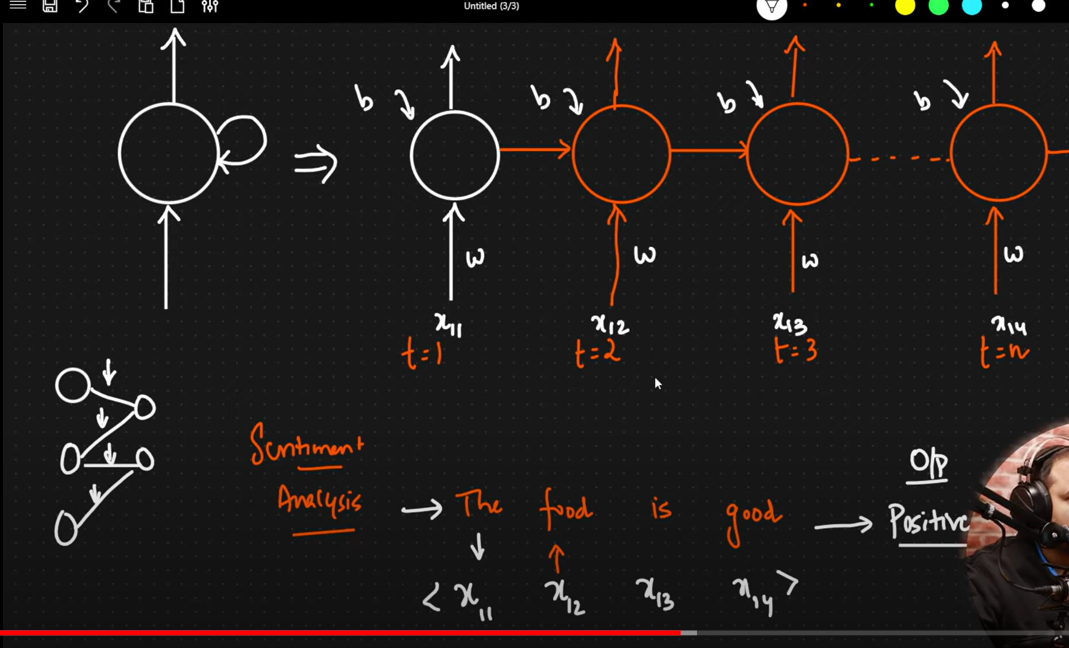 Untitled (3/3)
b b b b
w w w w
x11 x12 x13 x14
t=1 t=2 t=3 t=n
Sentiment
Analysis → The food is good → Positive
O/p
< x11 x12 x13 x14 >